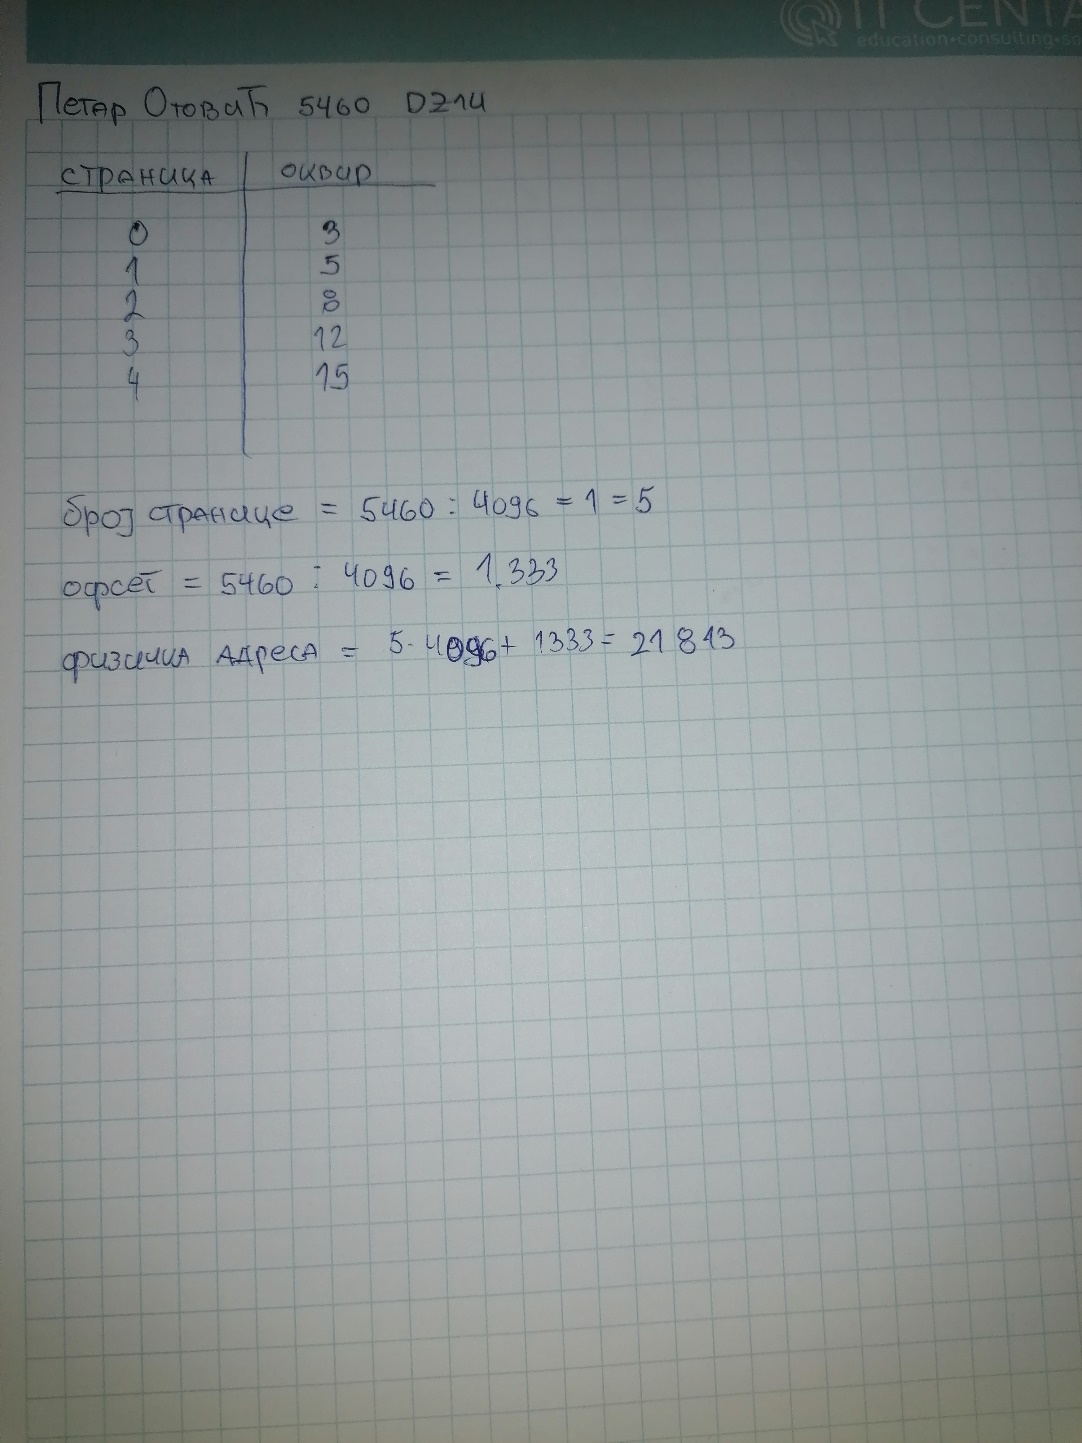 IT CENTA
education•consulting•so
Петар Отовић 5460 DZ14
страница оквир
0 3
1 5
2 8
3 12
4 15
број странице = 5460 : 4096 = 1 = 5
офсет = 5460 : 4096 = 1.333
физичка адреса = 5 · 4096 + 1333 = 21 813